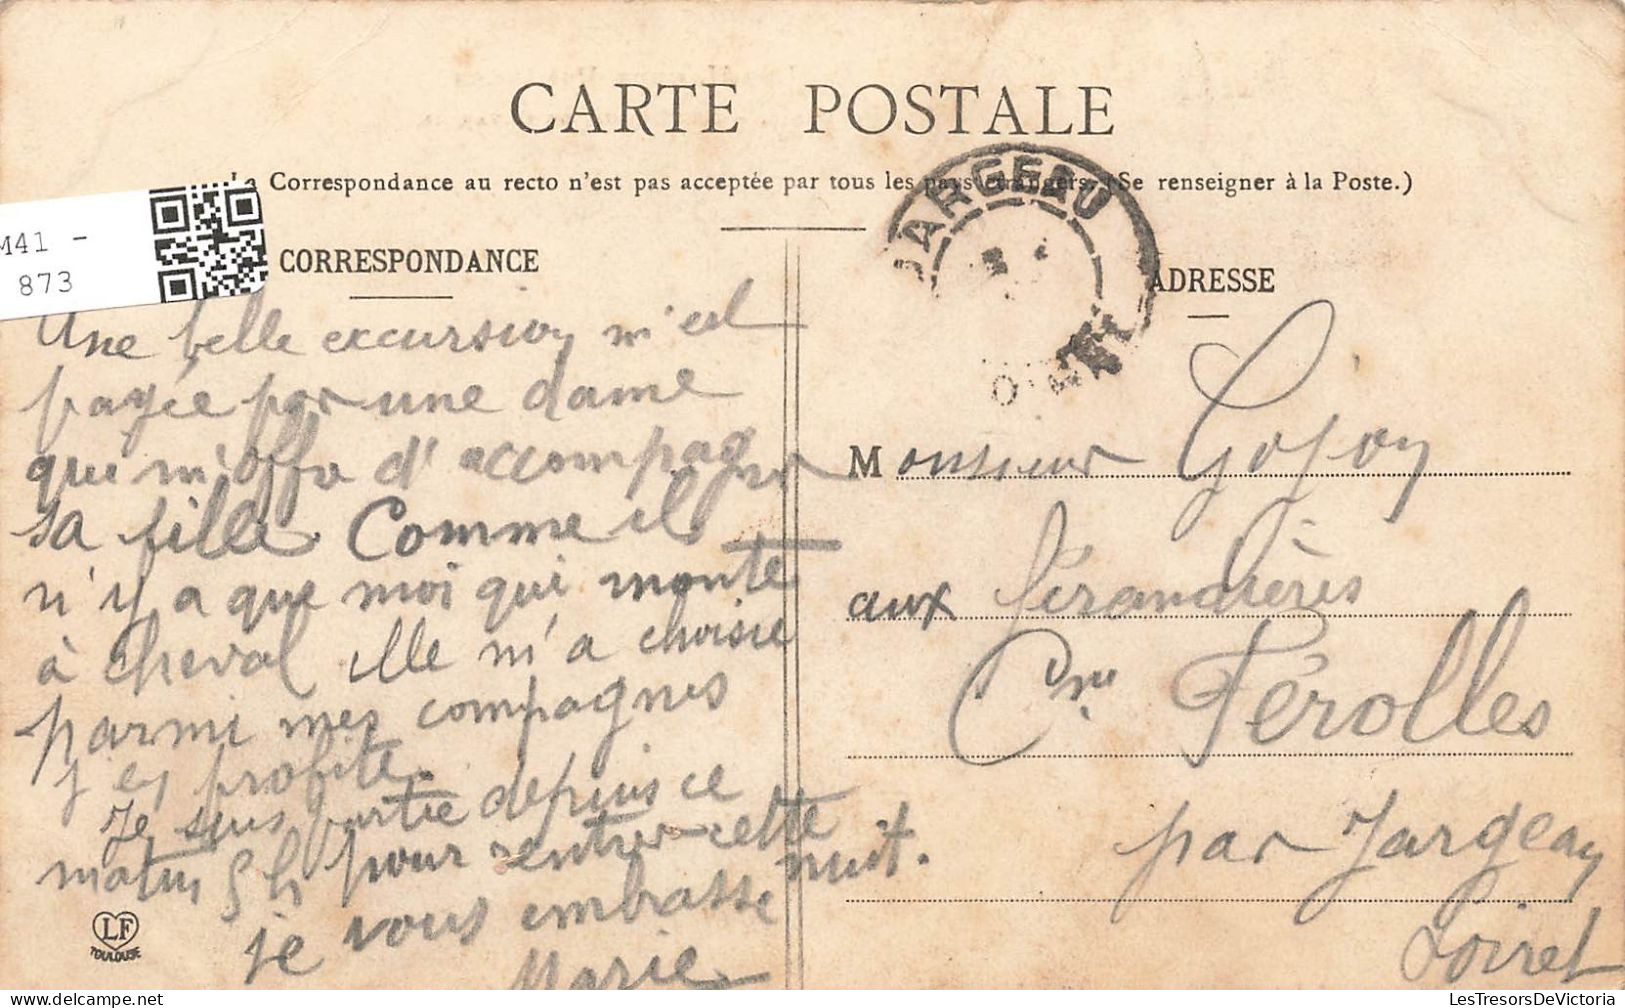 CARTE POSTALE
La Correspondance au recto n'est pas acceptée par tous les pays étrangers. (Se renseigner à la Poste.)
M41 -
873
CORRESPONDANCE
Une belle excursion m'est
payée par une dame
qui m'offre d'accompagner
sa fille. Comme il
n'y a que moi qui monte
à cheval elle m'a choisie
parmi mes compagnes
j'en profite.
Je suis partie depuis ce
matin 5 h pour rentrer cette
nuit.
je vous embrasse
Marie
LF
TOULOUSE
JARGEAU
ADRESSE
Monsieur Gojon
aux
Cne Férolles
par Jargeau
Loiret
LesTresorsDeVictoria